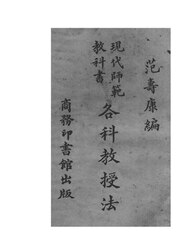 范壽康編
現代師範
教科書
各科教授法
商務印書館出版